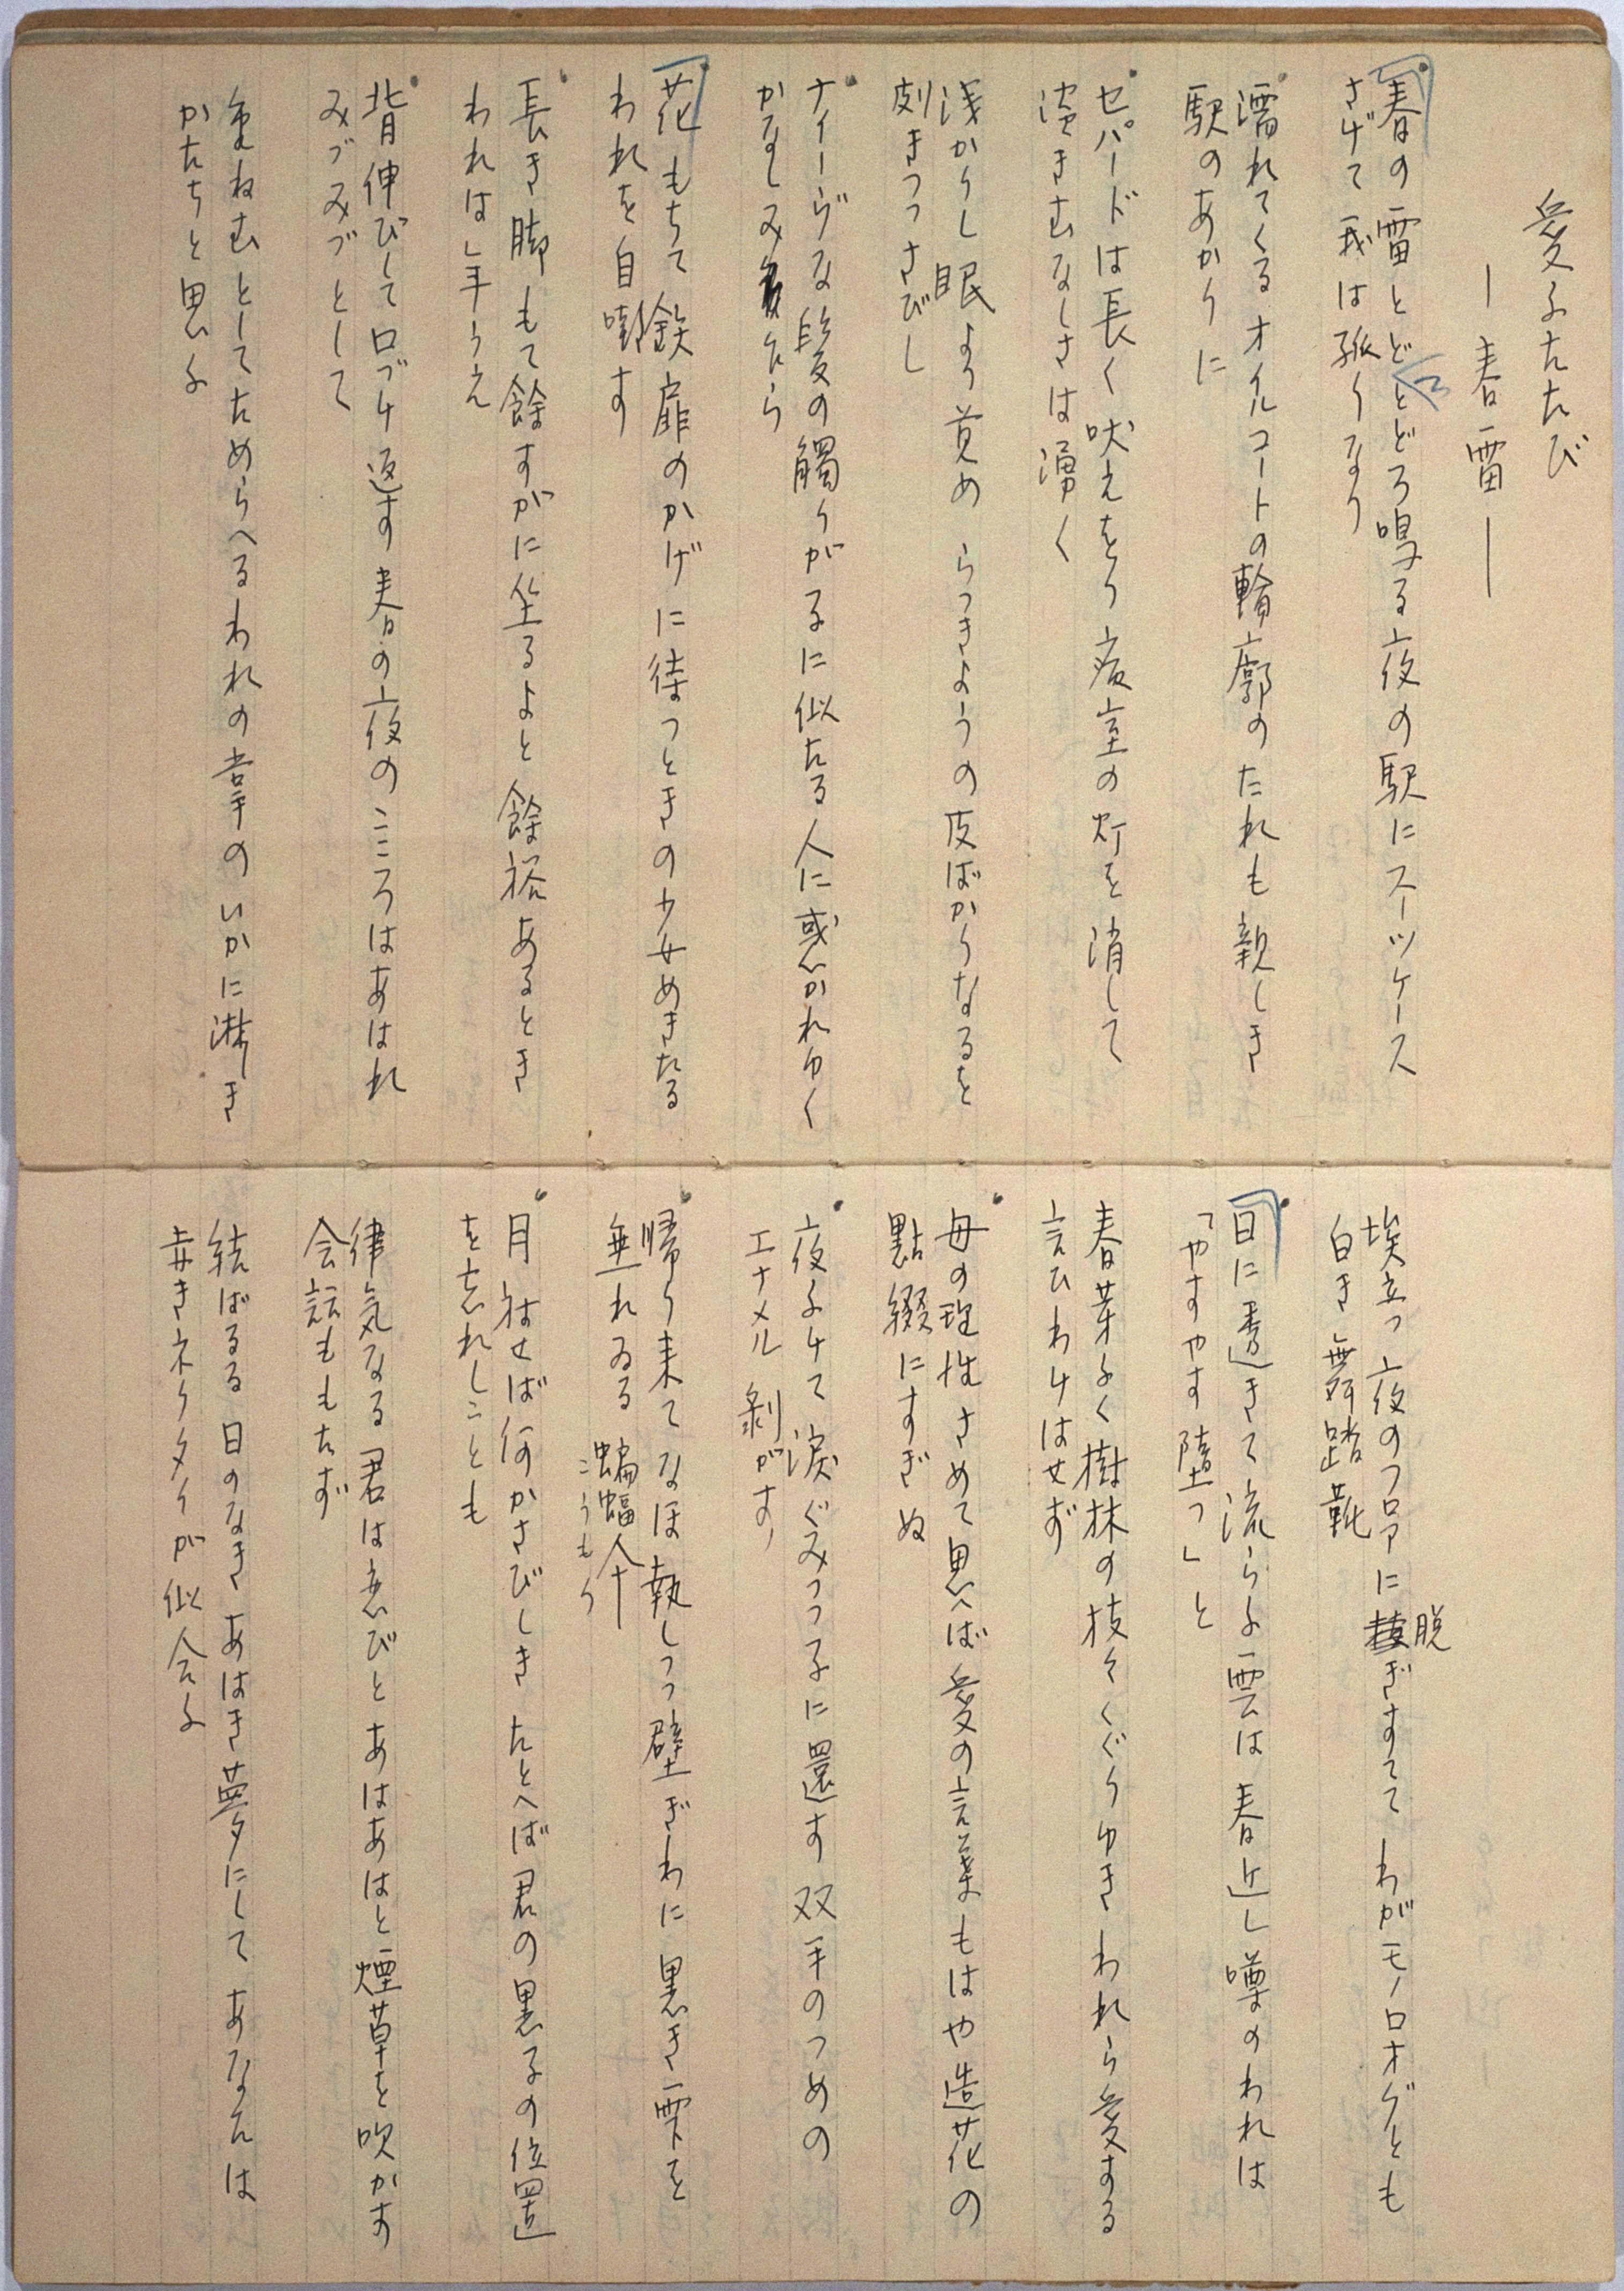 愛ふたたび
―春雷―
春の雷とどとどろ鳴る夜の駅にスーツケース
さげて我は孤りなり
濡れてくるオイルコートの輪廓のたれも親しき
駅のあかりに
セパードは長く吠えをり病室の灯を消して
泣きむなしさは湧く
浅かりし眠より覚め らつきようの皮ばかりなるを
剝きつつさびし
ナイーヴな髪の觸りがるに似たる人に惑かれゆく
かなしみ
花もちて鉄扉のかげに待つときの少女めきたる
われを自嘲す
長き脚もて餘すがに坐るよと餘裕あるとき
われは年うえ
背伸びして口づけ返す春の夜のこころはあはれ
みづみづとして
重ねむとしてためらへるわれの掌のいかに淋しき
かたちと思ふ
埃立つ夜のフロアに脱ぎすてて わがモノロオグとも
白き舞踏靴
日に透きて流らふ雲は春近し噂のわれは
「やすやす堕つ」と
春芽ふく樹林の枝々くぐりゆきわれら愛する
言ひわけはせず
母の理性さめて思へば愛の言葉もはや造花の
點綴にすぎぬ
夜ふけて涙ぐみつつ子に還す 双手のつめの
エナメル剝がす
帰り来てなほ執しつ壁ぎわに黒き雫を
垂れゐる 蝙蝠傘
こうもり
月積せば何かさびしき たとへば君の黒子の位置
を忘れしことも
律気なる君は悲びとあはあはと煙草を吹かす
会話ももたず
結ばるる日のなきあはき夢にして あなたは
赤きネクタイが似合ふ